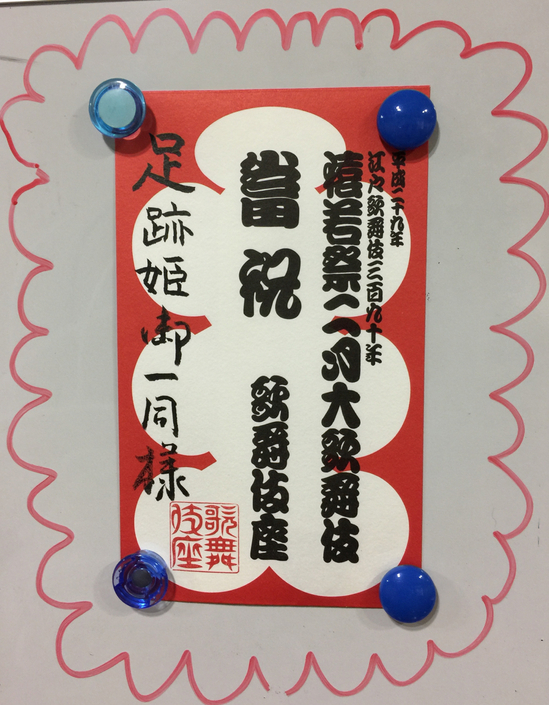 平成二十九年
江戸歌舞伎三百九十年
猿若祭二月大歌舞伎
當祝
歌舞伎座
足跡姫御一同様
歌舞
伎座